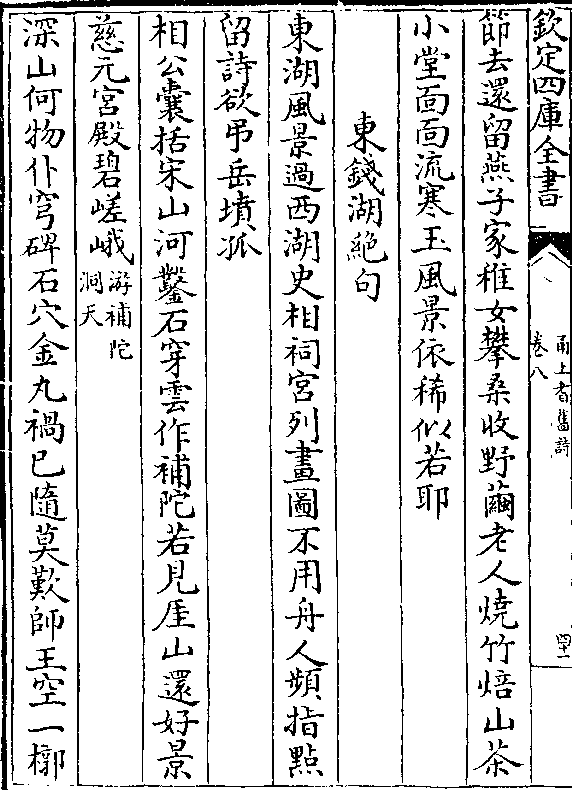 欽定四庫全書
甬上耆舊詩
卷八
四十一
節去還留燕子家稚女攀桑收野繭老人燒竹焙山茶
小堂面面流寒玉風景依稀似若耶
東錢湖絶句
東湖風景過西湖史相祠宫列畫圖不用舟人頻指㸃
留詩欲弔岳墳孤
相公囊括宋山河鑿石穿雲作補陀若見厓山還好景
慈元宫殿碧嵯峨游補陀洞天
深山何物仆穹碑石穴金丸禍已隨莫歎師王空一槨